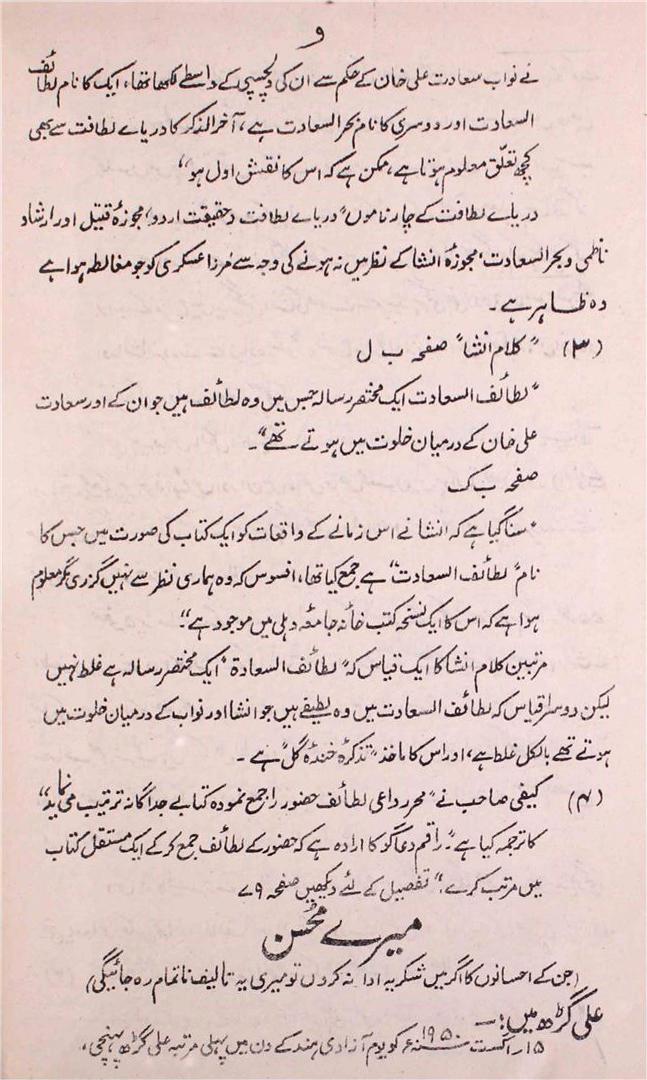 و
نے نواب سعادت علی خان کے حکم سے ان کی دلچسپی کے واسطے لکھا تھا، ایک کا نام لطائف
السعادت اور دوسری کا نام بحر السعادت ہے، آخر الذکر کا دریاے لطافت سے بھی
کچھ تعلّق معلوم ہوتا ہے، ممکن ہے کہ اس کا نقش اول ہو“
دریاے لطافت کے چار ناموں ”دریاے لطافت و حقیقت اردو، مجوزۂ قتیل اور ارشاد
ناظمی و بحر السعادت، مجوزہ انشا کے نظر میں نہ ہونے کی وجہ سے مرزا عسکری کو جو مغالطہ ہوا ہے
وہ ظاہر ہے۔
(۳) ”کلام انشا“ صفحہ ب ل
”لطائف السعادت ایک مختصر رسالہ جس میں وہ لطائف ہیں جو ان کے اور سعادت
علی خان کے درمیان خلوت میں ہوتے تھے“۔
صفحہ ب ک
”سنا گیا ہے کہ انشا نے اس زمانے کے واقعات کو ایک کتاب کی صورت میں جس کا
نام ”لطائف السعادت“ ہے جمع کیا تھا، افسوس کہ وہ ہماری نظر سے نہیں گزری مگر معلوم
ہوا ہے کہ اس کا ایک نسخہ کتب خانہ جامعہ دہلی میں موجود ہے“۔
مرتبین کلام انشا کا ایک قیاس کہ ”لطائف السعادۃ“ ایک مختصر رسالہ ہے غلط نہیں
لیکن دوسرا قیاس کہ لطائف السعادت میں وہ لطیفے ہیں جو انشا اور نواب کے درمیان خلوت میں
ہوتے تھے بالکل غلط ہے، اور اس کا ماخذ ”تذکرۂ خندۂ گل“ ہے۔
(۴) کیفی صاحب نے ”محرر داعی لطائف حضور را جمع نمودہ کتابے جداگانہ ترتیب می نماید“
کا ترجمہ کیا ہے ”راقم دعاگو کا ارادہ ہے کہ حضور کے لطائف جمع کر کے ایک مستقل کتاب
میں مرتب کرے“ تفصیل کے لئے دیکھیں صفحہ ۷۹
میرے محسن
(جن کے احسانوں کا اگر میں شکریہ ادا نہ کروں تو میری یہ تالیف ناتمام رہ جائیگی)
علی گڑھ میں:۔
۱۵ اگست ۱۹۵۰ء کو یوم آزادی ہند کے دن میں پہلی مرتبہ علی گڑھ پہنچی،